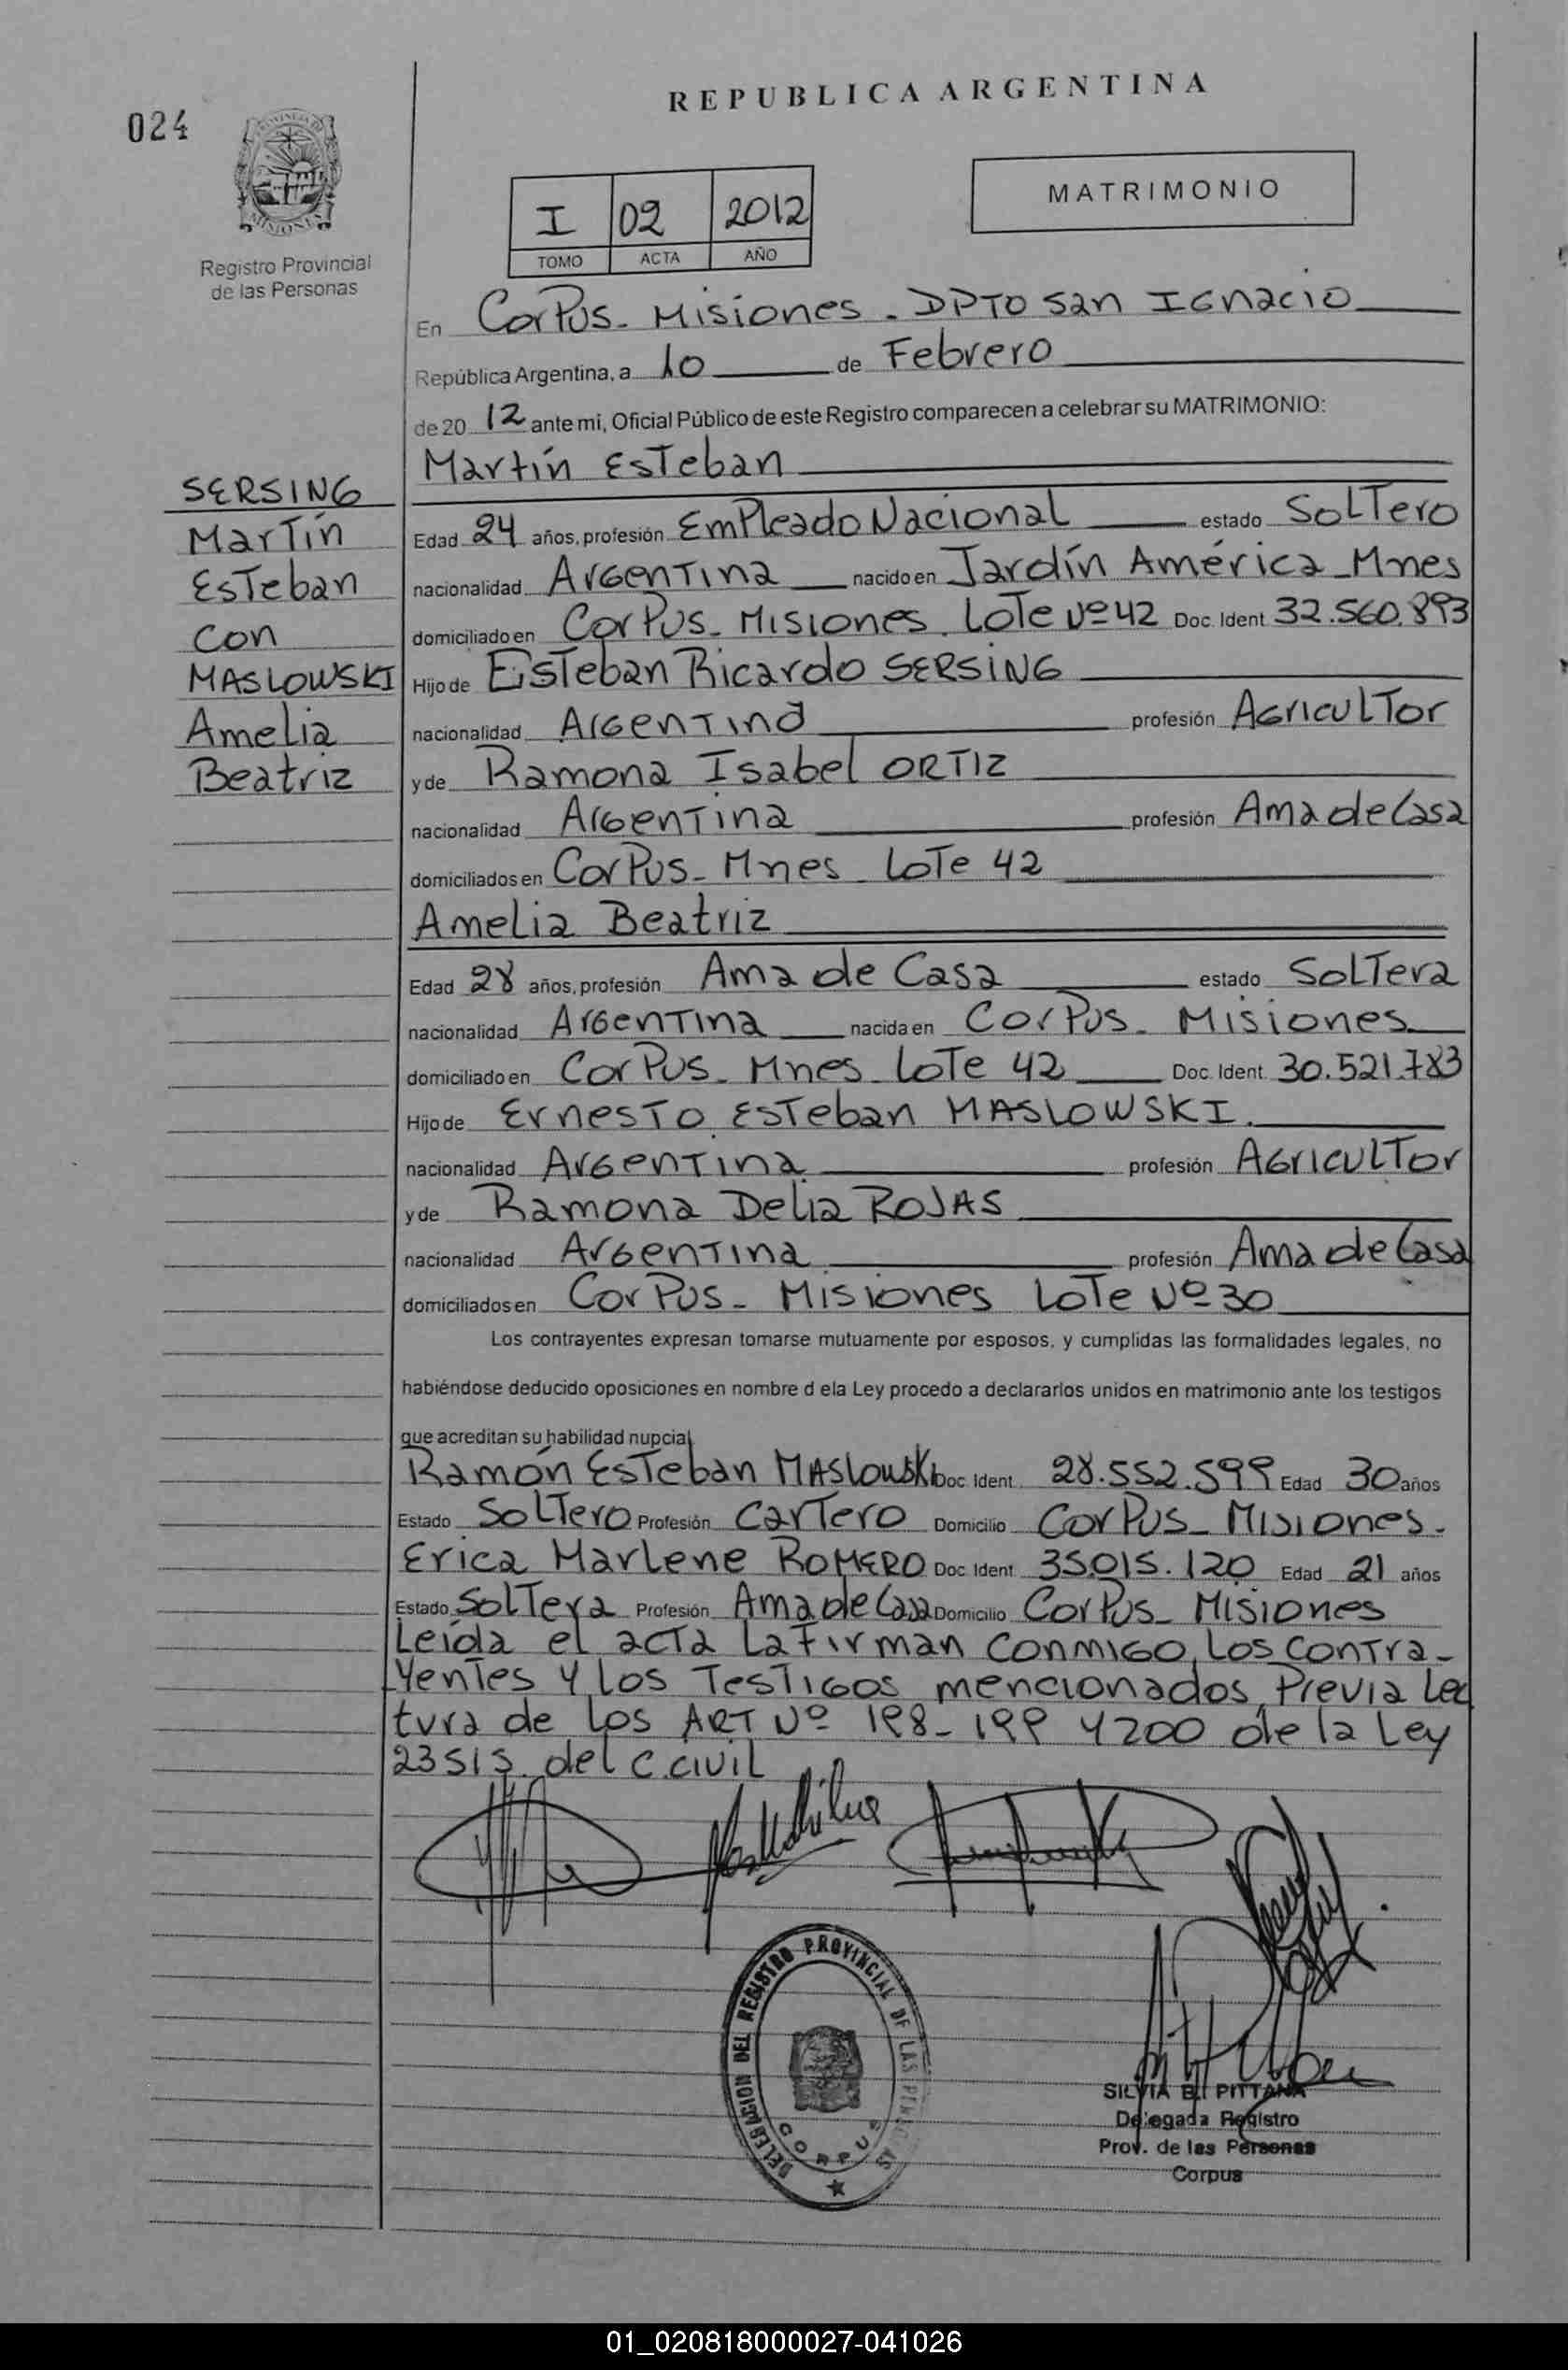 REPUBLICA ARGENTINA
024
MISIONES
Registro Provincial
de las Personas
I 02 2012
TOMO ACTA AÑO
MATRIMONIO
En Corpus - Misiones - DPTO San Ignacio
República Argentina, a 10 de Febrero
de 20 12 ante mi, Oficial Público de este Registro comparecen a celebrar su MATRIMONIO:
Martín Esteban
SERSING
Martín
Esteban
con
MASLOWSKI
Amelia
Beatriz
Edad 24 años, profesión Empleado Nacional estado Soltero
nacionalidad Argentina nacido en Jardín América - Mnes
domiciliado en Corpus - Misiones. Lote Nº 42 Doc. Ident. 32.560.893
Hijo de Esteban Ricardo SERSING
nacionalidad Argentina profesión Agricultor
y de Ramona Isabel ORTIZ
nacionalidad Argentina profesión Ama de Casa
domiciliados en Corpus - Mnes Lote 42
Amelia Beatriz
Edad 28 años, profesión Ama de Casa estado Soltera
nacionalidad Argentina nacida en Corpus - Misiones
domiciliado en Corpus - Mnes - Lote 42 Doc. Ident. 30.521.783
Hijo de Ernesto Esteban MASLOWSKI.
nacionalidad Argentina profesión Agricultor
y de Ramona Delia ROJAS
nacionalidad Argentina profesión Ama de Casa
domiciliados en Corpus - Misiones Lote Nº 30
Los contrayentes expresan tomarse mutuamente por esposos, y cumplidas las formalidades legales, no
habiéndose deducido oposiciones en nombre d ela Ley procedo a declararlos unidos en matrimonio ante los testigos
que acreditan su habilidad nupcial
Ramón Esteban MASLOWSKI Doc. Ident. 28.552.599 Edad 30 años
Estado Soltero Profesión Cartero Domicilio Corpus - Misiones -
Erica Marlene ROMERO Doc. Ident. 35.015.120 Edad 21 años
Estado Soltera Profesión Ama de Casa Domicilio Corpus - Misiones
Leída el acta La Firman conmigo, Los contra-
yentes y Los Testigos mencionados, Previa Lec
tura de Los ART Nº 198 - 199 y 200 de la Ley
23515. del C. civil
DELEGACION DEL REGISTRO PROVINCIAL DE LAS PERSONAS
CORPUS
SILVIA B. PITTANA
Delegada Registro
Prov. de las Personas
Corpus
01_020818000027-041026